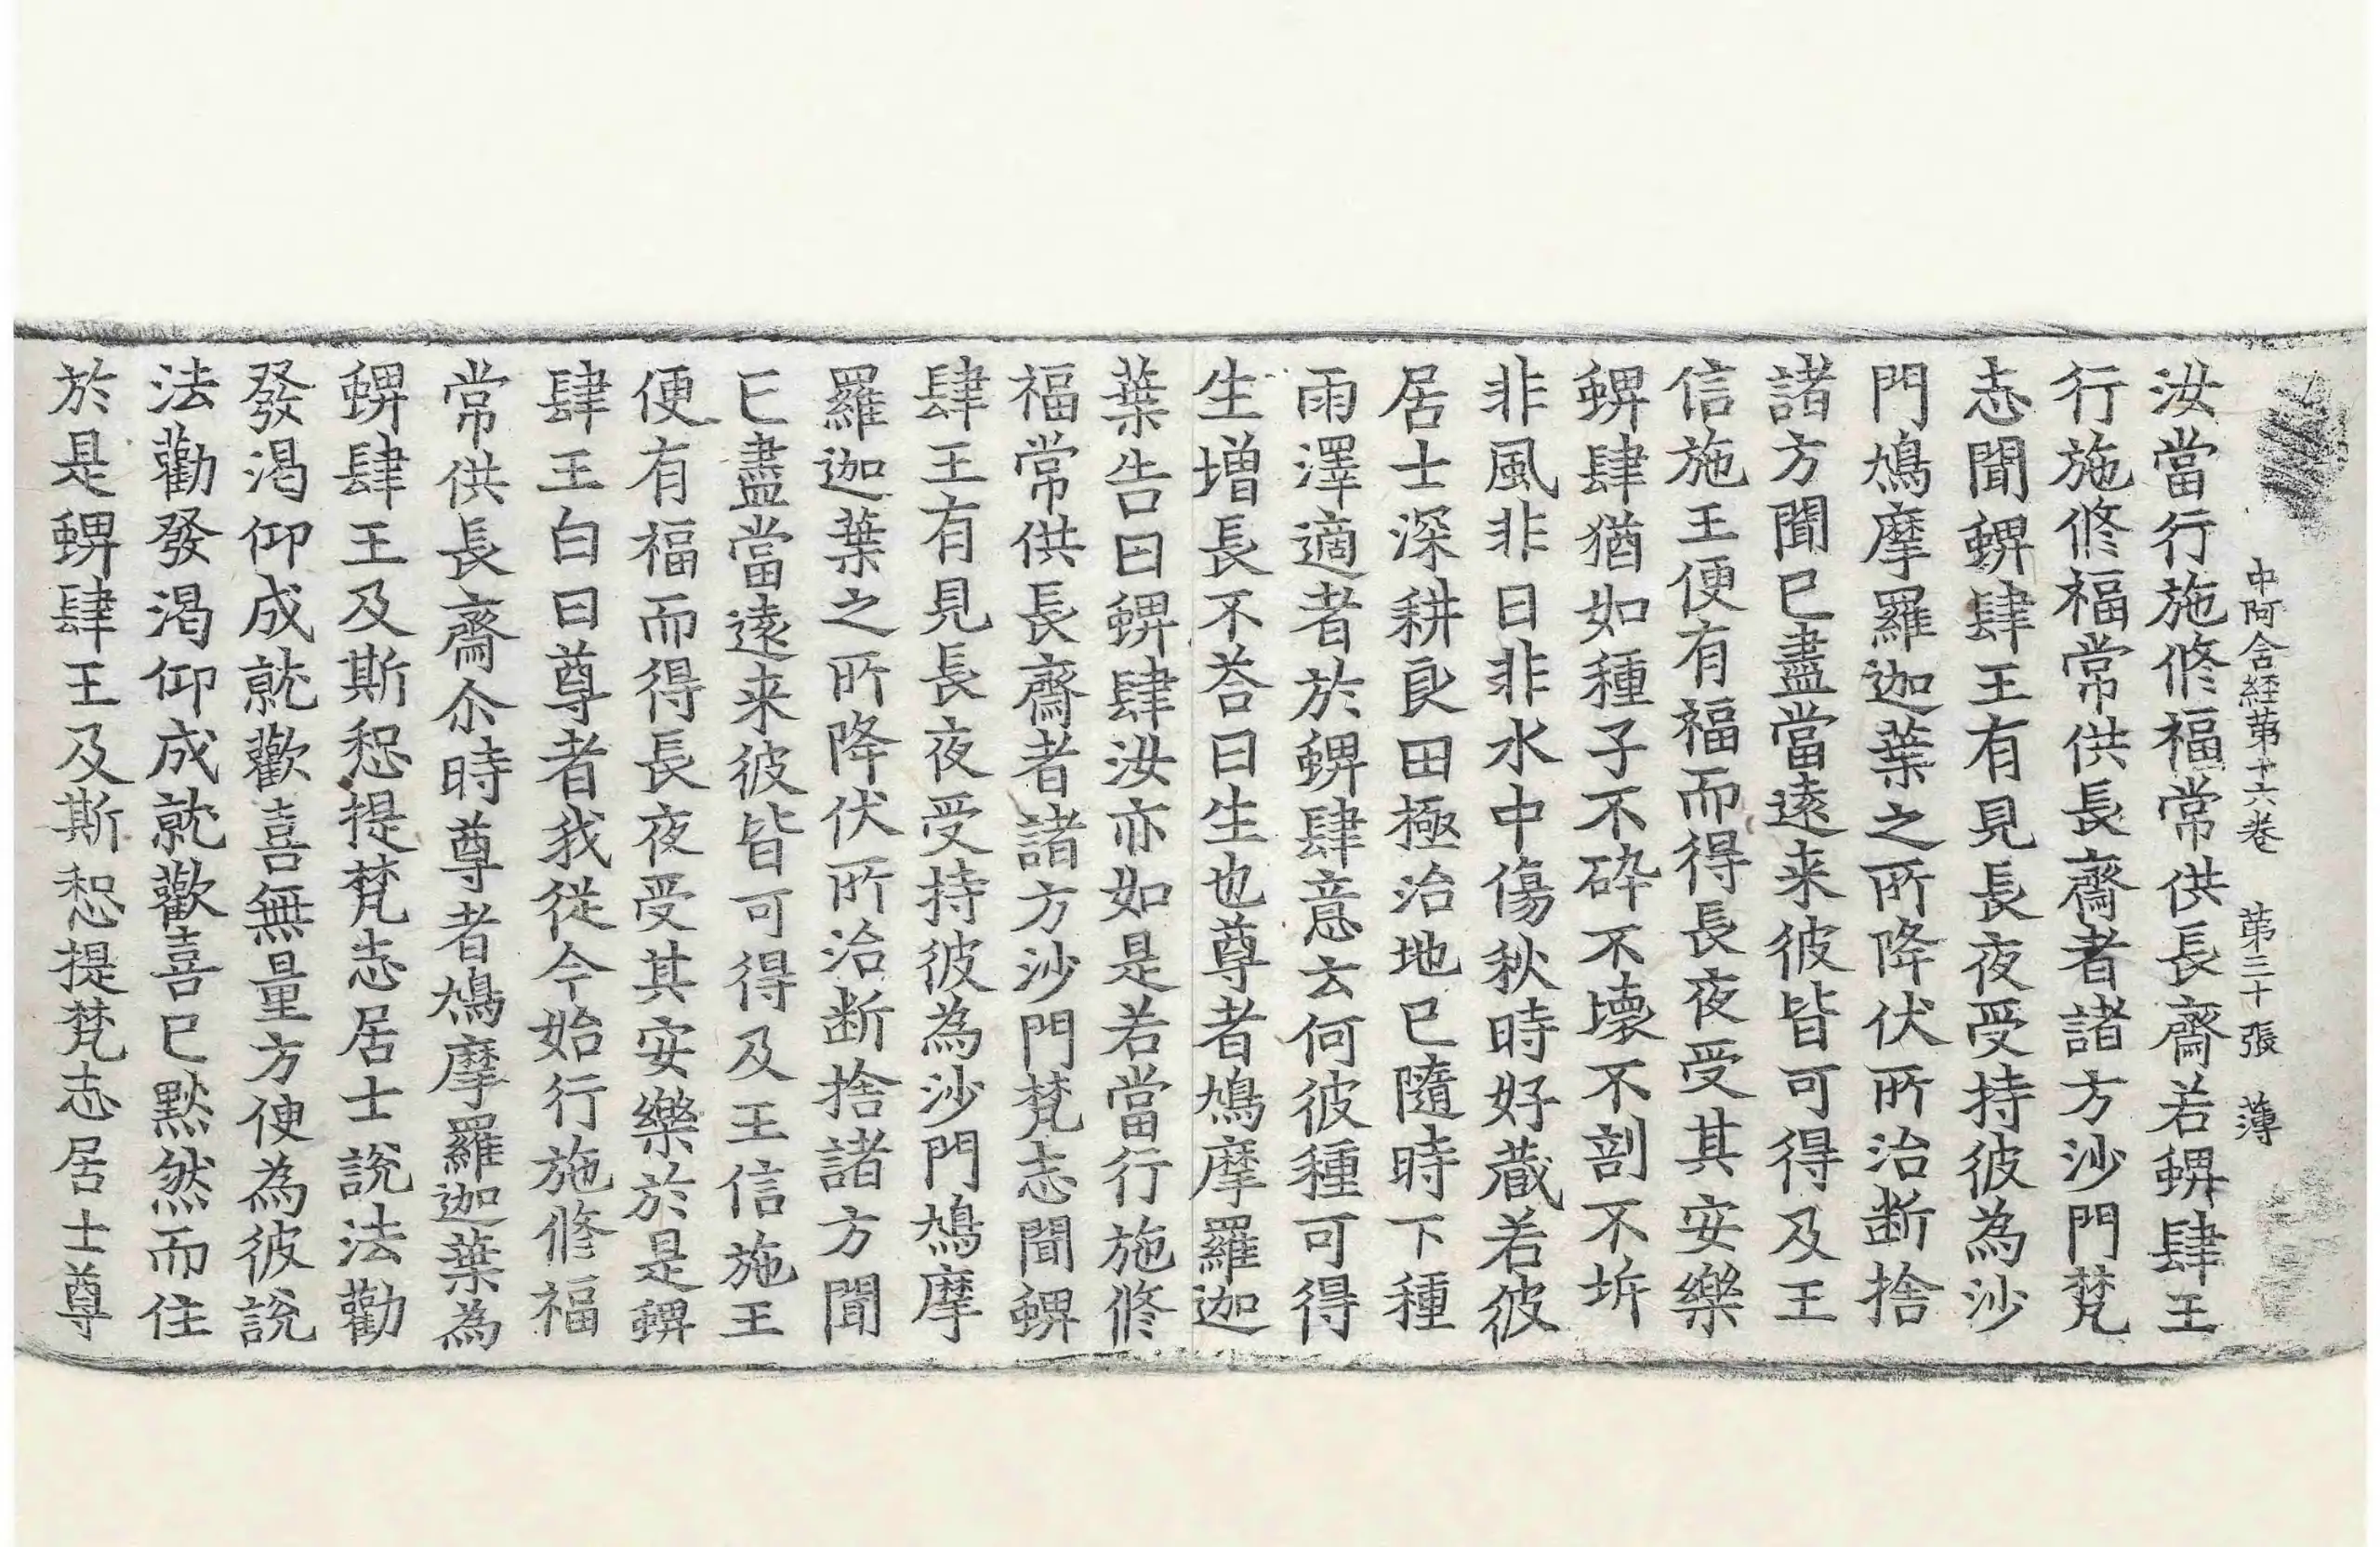 中阿含経苐十六卷　苐三十張　薄
汝當行施修福常供長齋若蜱肆王
行施修福常供長齋者諸方沙門梵
志聞蜱肆王有見長夜受持彼為沙
門鳩摩羅迦葉之所降伏所治断捨
諸方聞已盡當逺来彼皆可得及王
信施王便有福而得長夜受其安樂
蜱肆猶如種子不碎不壞不剖不坼
非風非日非水中傷秋時好蔵若彼
居士深耕良田極治地已隨時下種
雨澤適者於蜱肆意云何彼種可得
生增長不荅曰生也尊者鳩摩羅迦
葉告曰蜱肆汝亦如是若當行施修
福常供長齋者諸方沙門梵志聞蜱
肆王有見長夜受持彼為沙門鳩摩
羅迦葉之所降伏所治断捨諸方聞
已盡當逺来彼皆可得及王信施王
便有福而得長夜受其安樂於是蜱
肆王白曰尊者我從今始行施修福
常供長齋尒時尊者鳩摩羅迦葉為
蜱肆王及斯惒提梵志居士說法勸
發渴仰成就歡喜無量方便為彼說
法勸發渴仰成就歡喜已默然而住
於是蜱肆王及斯惒提梵志居士尊